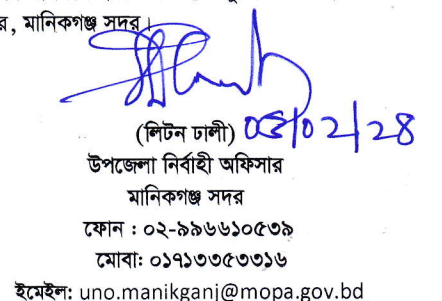 র, মানিকগঞ্জ সদর।
(লিটন ঢালী)
উপজেলা নির্বাহী অফিসার
মানিকগঞ্জ সদর
ফোন : ০২-৯৯৬৬১০৫৩৯
মোবা: ০১৭১৩৩৫৩৩১৬
ইমেইল: uno.manikganj@mopa.gov.bd